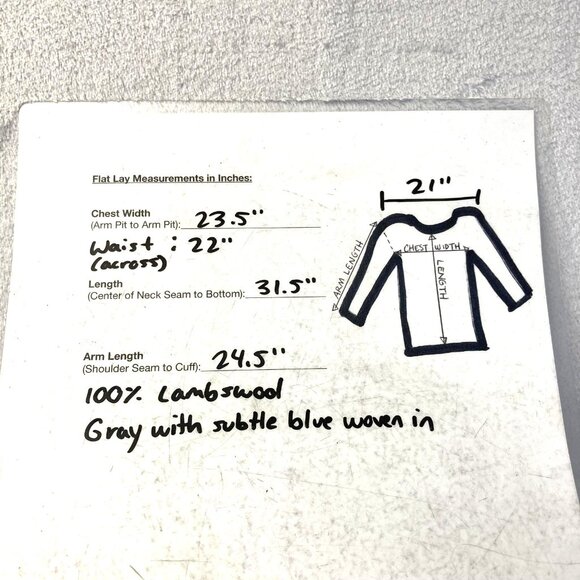 Flat Lay Measurements in Inches:
21"
Chest Width
(Arm Pit to Arm Pit): 23.5"
Waist : 22"
(across)
Length
(Center of Neck Seam to Bottom): 31.5"
Arm Length
(Shoulder Seam to Cuff): 24.5"
100% Lambswool
Gray with subtle blue woven in
ARM LENGTH
CHEST WIDTH
LENGTH